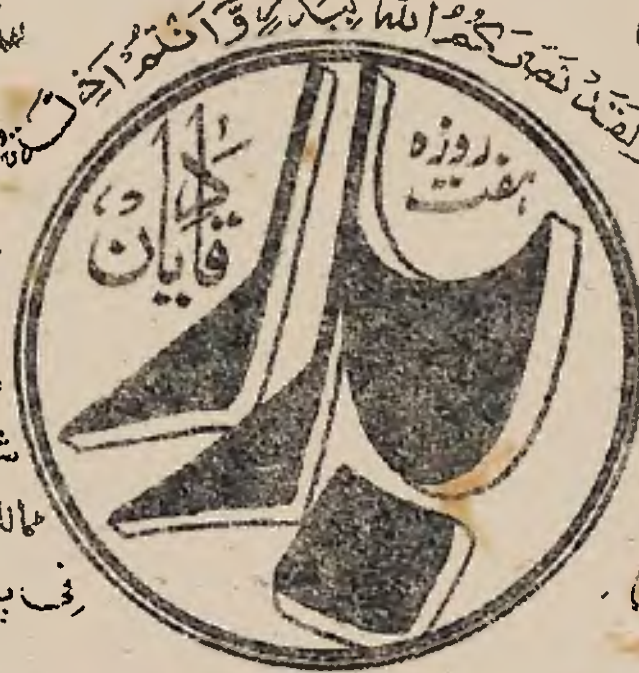 لَقَدْ نَصَرَكُمُ اللّٰهُ بِبَدْرٍ وَّاَنْتُمْ اَذِلَّةٌ
ہفت روزہ
بدر
قادیان